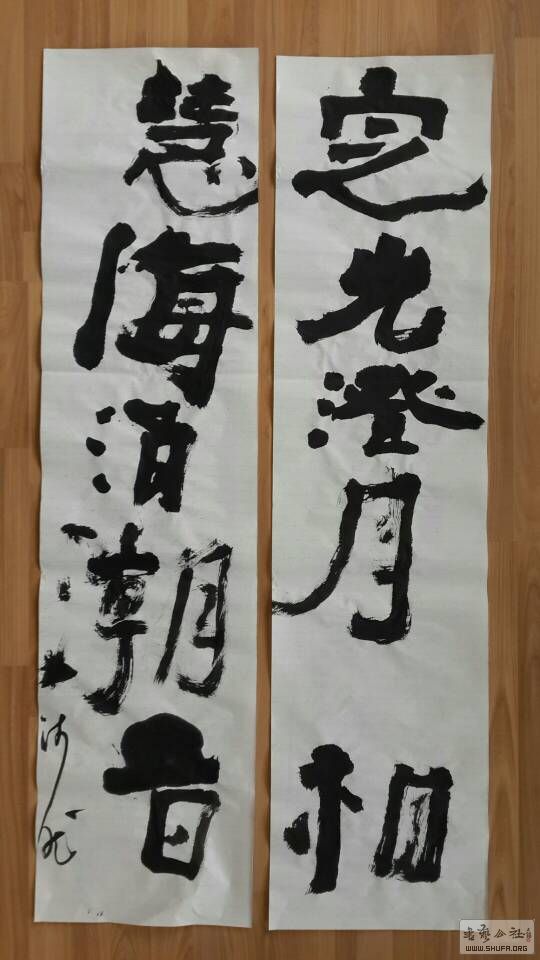 定光澄月相
慧海涌潮音
书艺公社
WWW.SHUFA.ORG